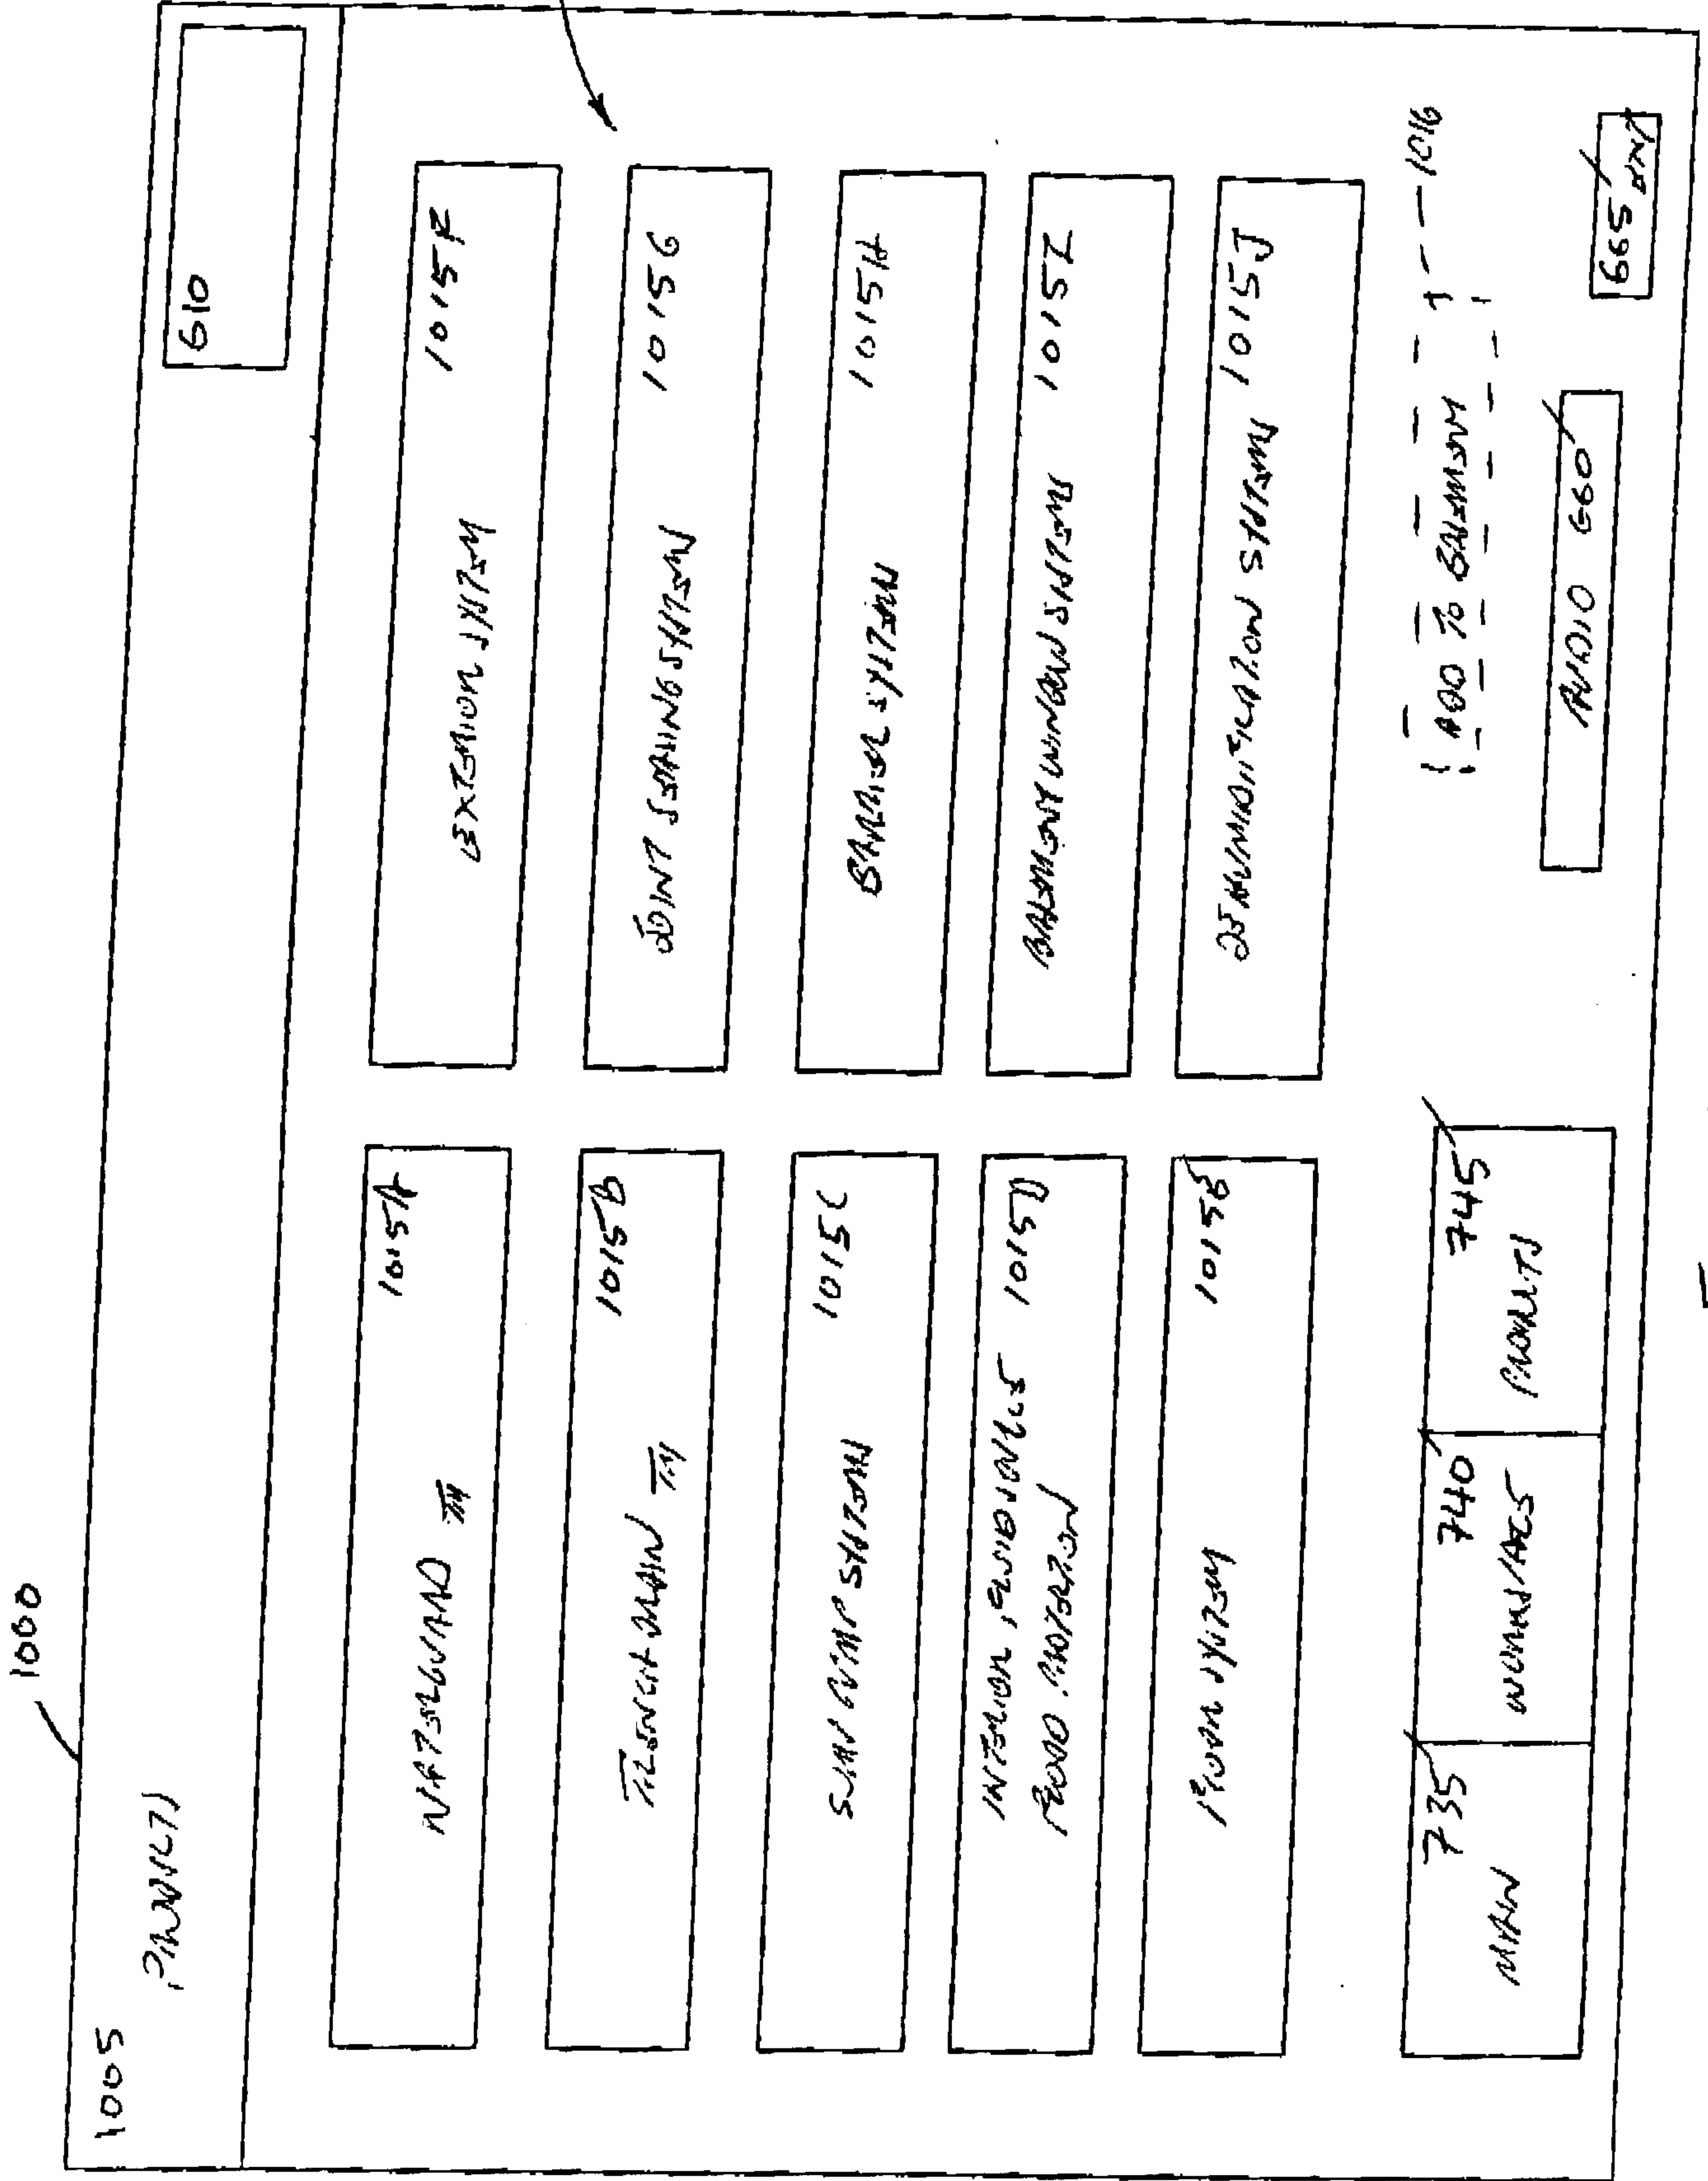 1000
1005
PRODUCTS
610
WATERGUARD TM 1015A
TRENCH DRAIN TM 1015B
SUMP PUMP SYSTEM 1015C
INTERIOR, 1015D
FLOOD PROTECTION
FLOOR SYSTEM 1015E
EXTERIOR SYSTEM 1015F
JOINT SEALING SYSTEM 1015G
BARRIER SYSTEM 1015H
BASEMENT WINDOW SYSTEMS 1015I
DEHUMIDIFICATION SYSTEMS 1015J
ADD TO BASEMENT 1016
MAIN 735
740
PRODUCTS 745
AUDIO 660
665